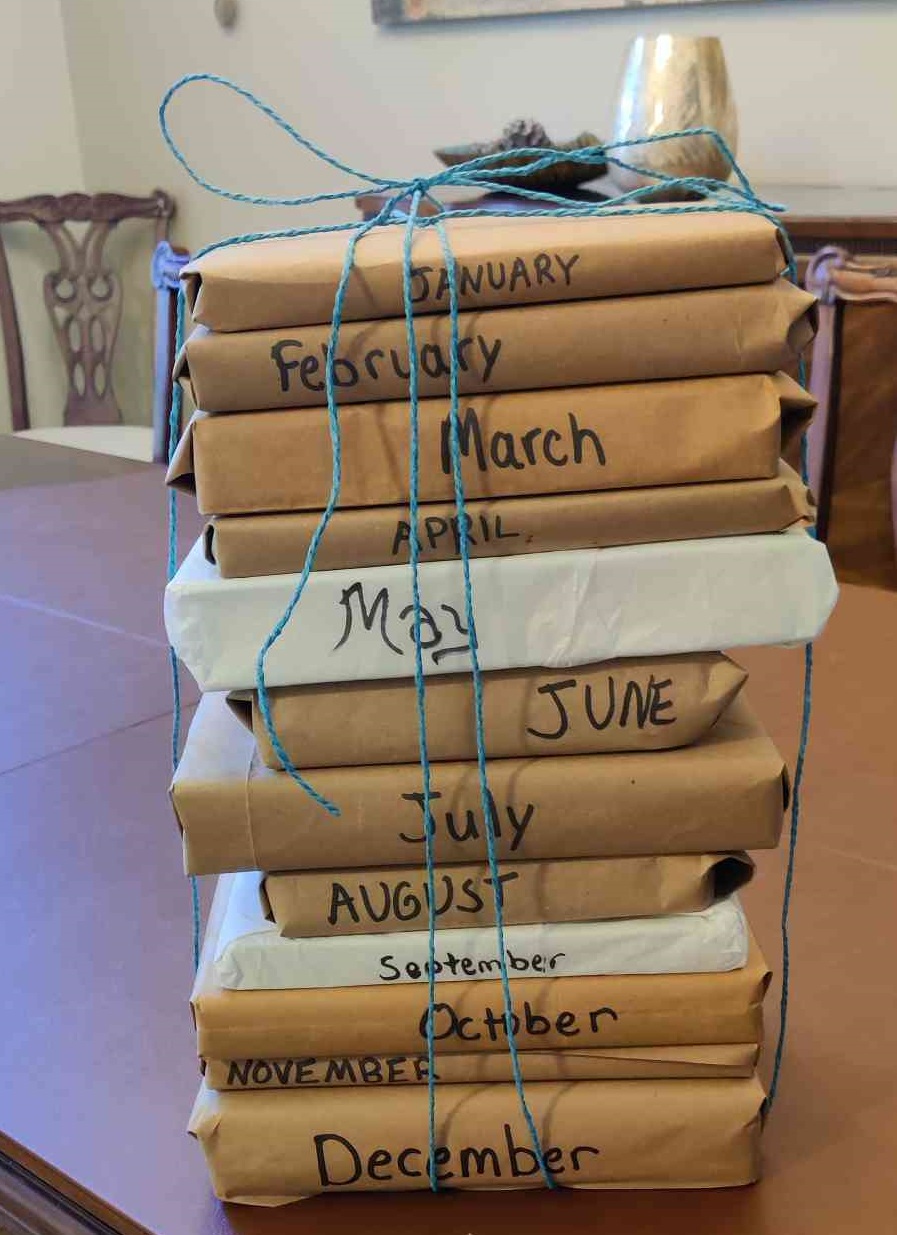 JANUARY
February
March
APRIL
May
JUNE
July
AUGUST
September
October
NOVEMBER
December